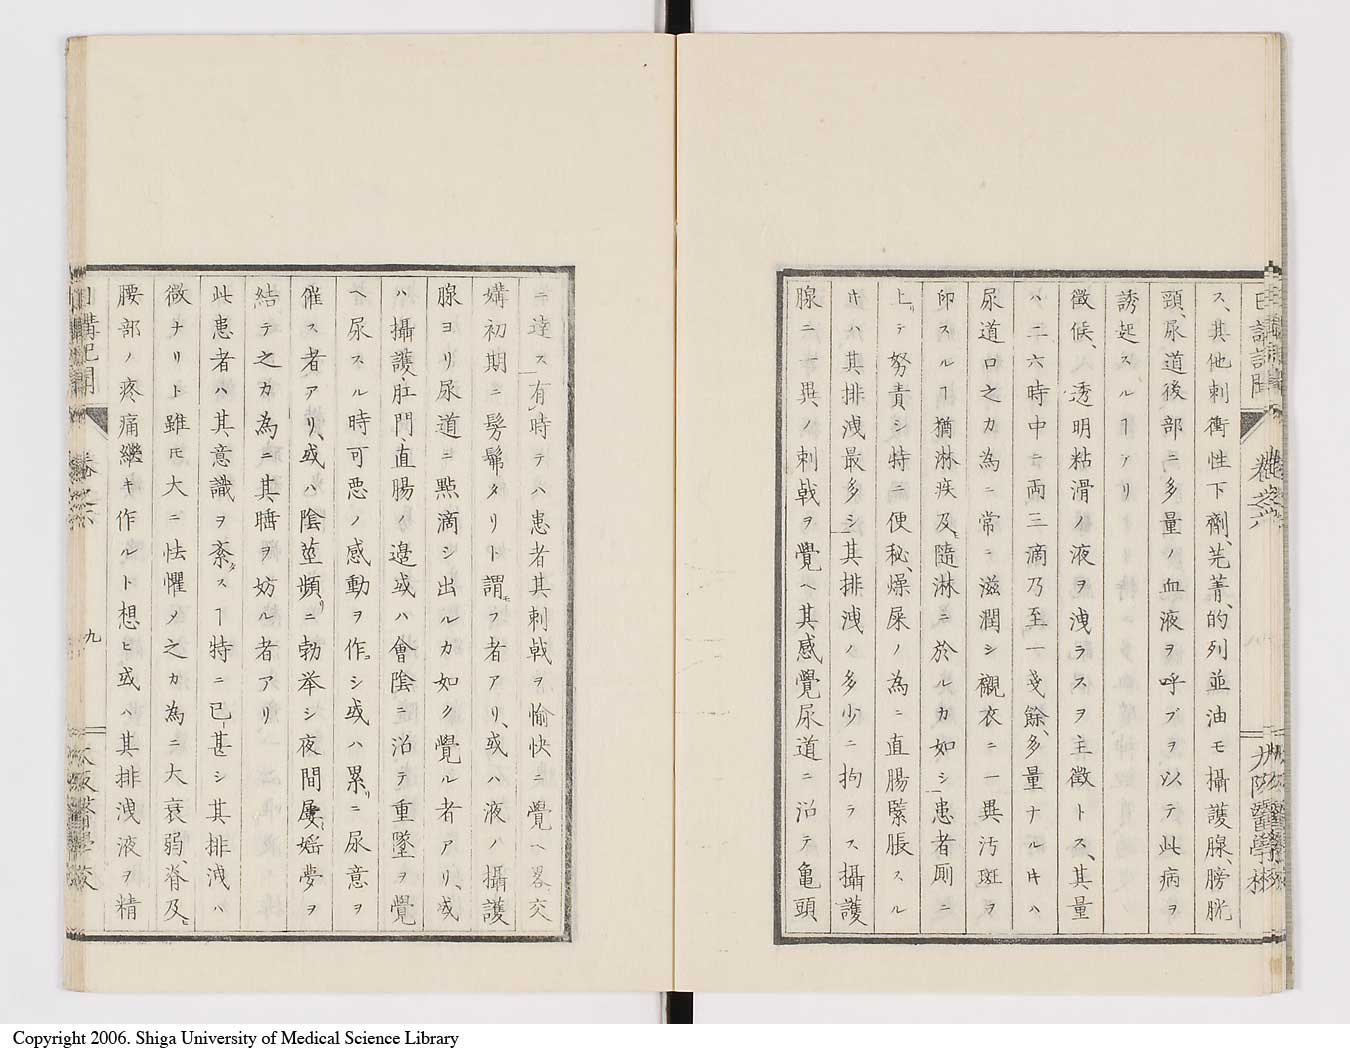 日講記聞
卷之六
大阪醫學校
ス、其他刺衝性下劑、芫菁、的列並油モ攝護腺、膀胱
頸、尿道後部ニ多量ノ血液ヲ呼ブヲ以テ此病ヲ
誘起スルヿアリ
徵候、透明粘滑ノ液ヲ洩ラスヲ主徵トス、其量
ハ二六時中ニ両三滴乃至一戔餘、多量ナル𪜈ハ
尿道口之カ為ニ常ニ滋潤シ襯衣ニ一異汚斑ヲ
印スルヿ猶淋疾及ヒ隨淋ニ於ルカ如シ患者厠ニ
上リテ努責シ特ニ便秘、燥屎ノ為ニ直腸緊脹スル
キハ其排洩最多シ其排洩ノ多少ニ拘ラス攝護
腺ニ一異ノ刺戟ヲ覺ヘ其感覺尿道ニ沿テ亀頭
ニ達ス有時テハ患者其刺戟ヲ愉快ニ覺ヘ畧交
媾初期ニ髣髴タリト謂モフ者アリ、或ハ液ハ攝護
腺ヨリ尿道ニ點滴シ出ルカ如ク覺ル者アリ、或
ハ攝護、肛門、直腸ノ邉或ハ會陰ニ沿テ重墜ヲ覺
ヘ尿スル時可悪ノ感動ヲ作コシ或ハ累リニ尿意ヲ
催ス者アリ、或ハ陰莖頻リニ勃举シ夜間屢婬夢ヲ
結テ之カ為ニ其睡ヲ妨ル者アリ
此患者ハ其意識ヲ紊タスヿ特ニ已甚シ其排洩ハ
微ナリト雖𪜈大ニ怯懼ノ之カ為ニ大衰弱、脊及ヒ
腰部ノ疼痛繼キ作ルト想ヒ或ハ其排洩液ヲ精
日講記聞
卷之六
九
大阪醫學校
Copyright 2006. Shiga University of Medical Science Library